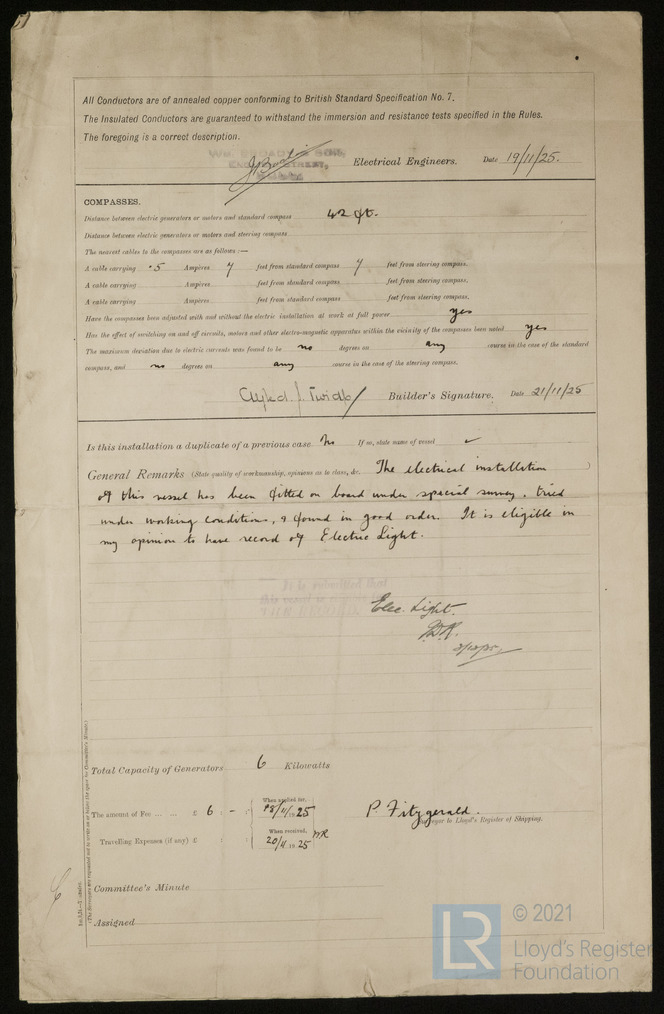 All Conductors are of annealed copper conforming to British Standard Specification No. 7.
The Insulated Conductors are guaranteed to withstand the immersion and resistance tests specified in the Rules.
The foregoing is a correct description.
Electrical Engineers. Date 19/11/25.
COMPASSES.
Distance between electric generators or motors and standard compass 42 ft.
Distance between electric generators or motors and steering compass
The nearest cables to the compasses are as follows:—
A cable carrying .5 Ampères 7 feet from standard compass 7 feet from steering compass.
A cable carrying Ampères feet from standard compass feet from steering compass.
A cable carrying Ampères feet from standard compass feet from steering compass.
Have the compasses been adjusted with and without the electric installation at work at full power yes
Has the effect of switching on and off circuits, motors and other electro-magnetic apparatus within the vicinity of the compasses been noted yes
The maximum deviation due to electric currents was found to be no degrees on any course in the case of the standard
compass, and no degrees on any course in the case of the steering compass.
Builder's Signature. Date 21/11/25
Is this installation a duplicate of a previous case No If so, state name of vessel
General Remarks (State quality of workmanship, opinions as to class, &c. The electrical installation )
of this vessel has been fitted on board under special survey, tried
under working conditions, & found in good order. It is eligible in
my opinion to have record of Electric Light.
It is submitted that
this vessel is
THE RECORD.
Elec. Light.
Total Capacity of Generators 6 Kilowatts
The amount of Fee ... ... £ 6 : - : When applied for, 18/11/1925
P Fitzgerald.
Surveyor to Lloyd's Register of Shipping.
Travelling Expenses (if any) £ : : When received, 20/11 1925
Committee's Minute
Assigned
LR
© 2021
Lloyd's Register
Foundation